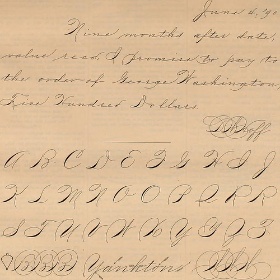 June 6, '90
Nine months after date,
value rec'd, I promise to pay to
the order of George Washington,
Five Hundred Dollars.
A B C D E F G H I J
K L M N O O P Q R R
S T U V W X Y G Z Z
BBB Yanktons